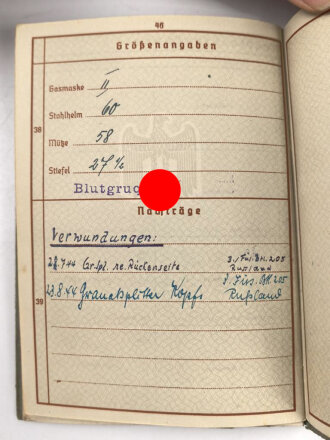 46
Größenangaben
Gasmaske II
Stahlhelm 60
38
Mütze 58
Stiefel 27 ½
Blutgrup
Nachträge
Verwundungen:
Gr.Spl. re. Rückenseite 3./Füs.Btl. 205
Russland
39
23.8.44 Granatsplitter Kopf 3. Füs. Btl 205
Rußland